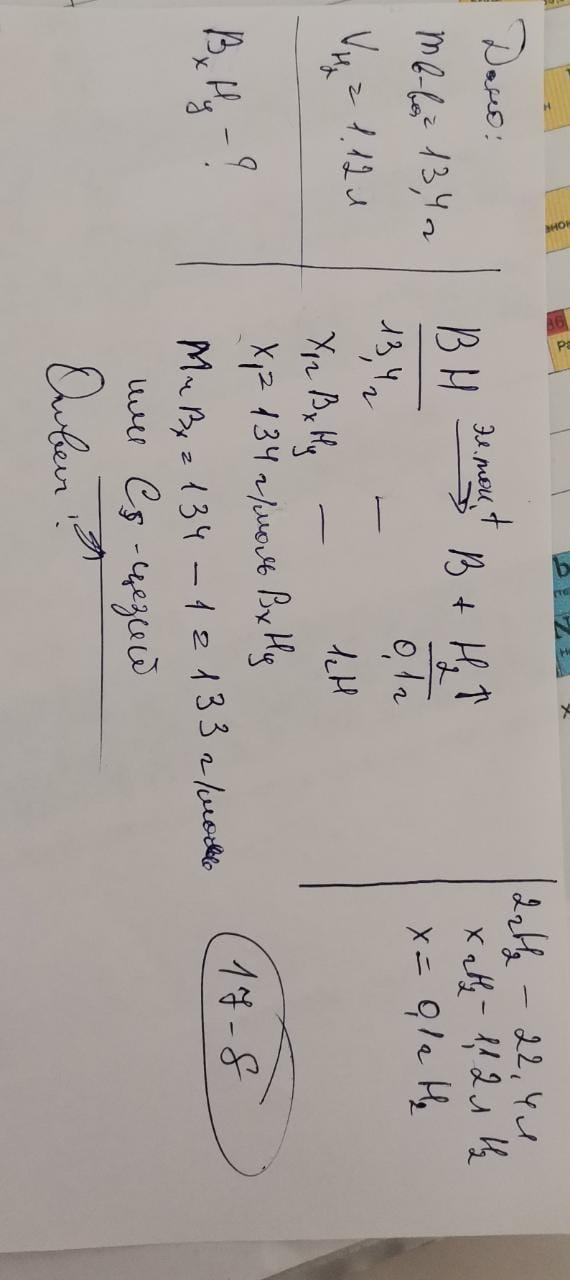 Дано:
m в-ва = 13,4 г
V H₂ = 1.12 л
BₓHᵧ - ?
BH эл.ток, t → B + H₂↑
13,4 г — 0,1 г
x₁ г BₓHᵧ — 1г H
x₁ = 134 г/моль BₓHᵧ
M r Bₓ = 134 - 1 = 133 г/моль
или Cs - цезий
Ответ:
2 г H₂ — 22,4 л
x г H₂ - 1,12 л H₂
x = 0,1 г H₂
17-8